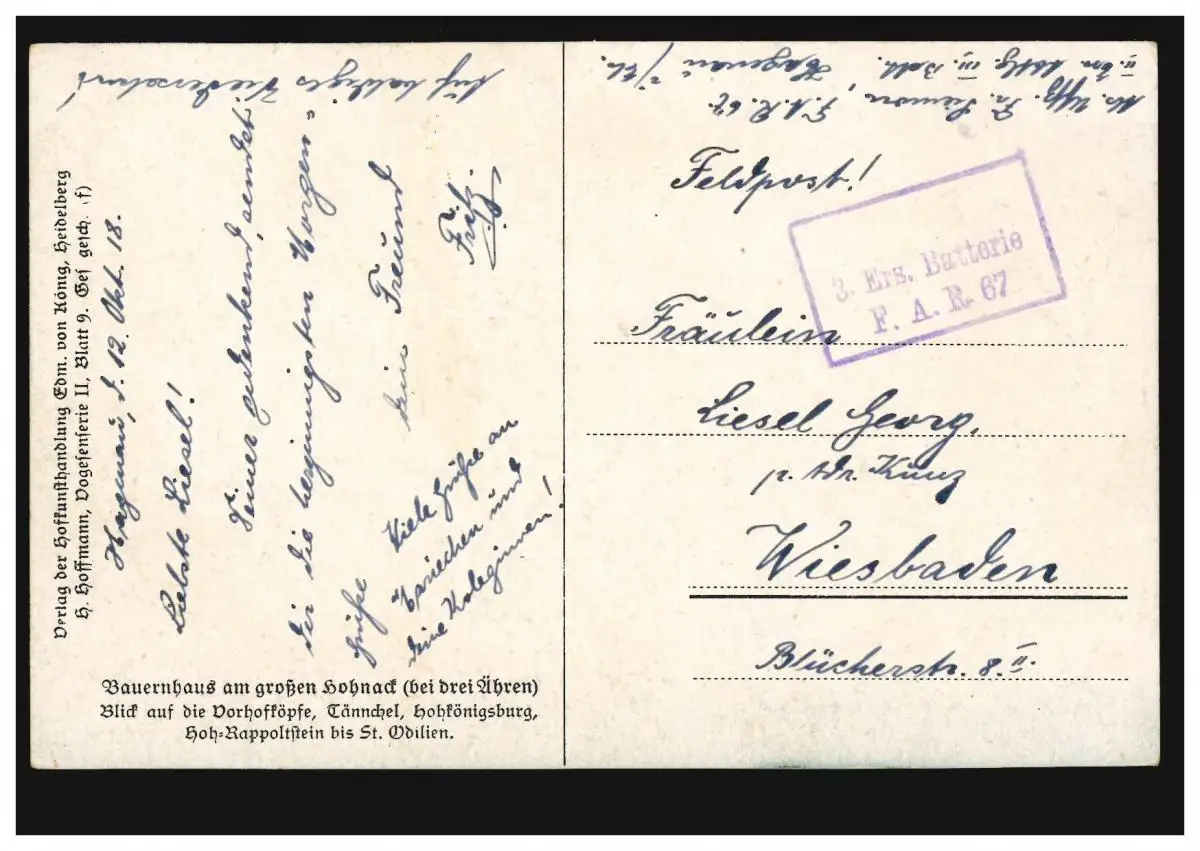 Verlag der Hofkunsthandlung Edm. von König, Heidelberg
H. Hoffmann, Vogesenserie II, Blatt 9. Ges gesch. (f)
Hagenau, d. 12. Okt. 18.
Liebste Liesel!
Deiner gedenkend, sendet
dir die herzinnigsten Morgen-
grüße dein Freund
Fritz.
Viele Grüße an
Mariechen und
deine Koleginnen!
Auf baldiges Wiedersehen!
Bauernhaus am großen Hohnack (bei drei Ähren)
Blick auf die Vorhofköpfe, Tännchel, Hohkönigsburg,
Hoh-Rappoltstein bis St. Odilien.
Uffz. Fr. F.A.R. 67.
III. Batt. Hagenau i/Els.
Feldpost!
3. Ers. Batterie
F. A. R. 67
Fräulein
Liesel Georg,
p. Adr. Kunz
Wiesbaden
Blücherstr. 8. II.